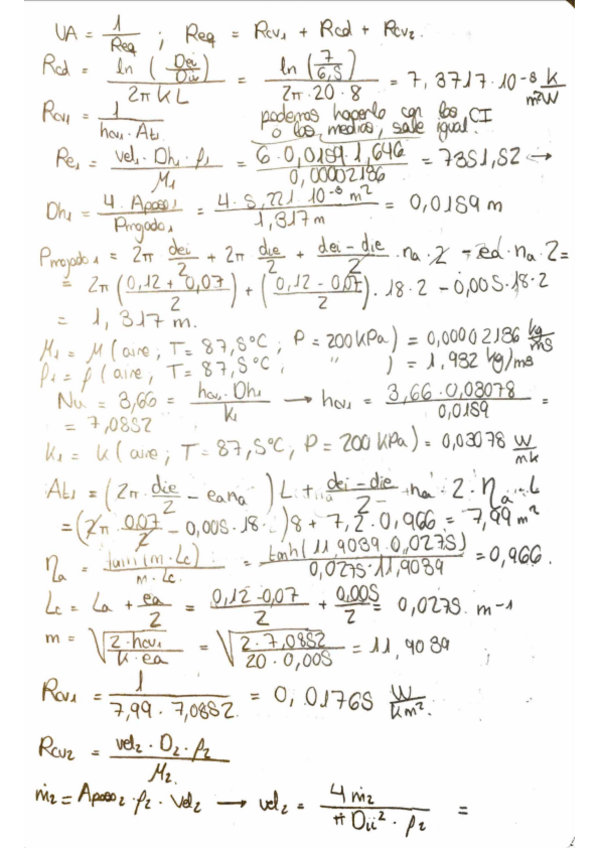 UA = 1/Req ; Req = Rcv1 + Rcd + Rcv2.
Rcd = ln(Dei/Dii)/2π K L = ln(7/6,5)/2π·20·8 = 7,3717·10⁻⁵ K/m²W
Rcv1 = 1/hcv1·At1 podemos hacerlo con los CI
o los medios, sale igual.
Re1 = vel1·Dh1·ρ1/M1 = 6·0,0159·1,646/0,00002136 = 7351,52 →
Dh1 = 4·Apaso1/Pmojado1 = 4·5,221·10⁻³ m²/1,317 m = 0,0159 m
Pmojado1 = 2π dei/2 + 2π die/2 + dei-die/2 · na · 2 - ea · na · 2 =
= 2π(0,12 + 0,07/2) + (0,12 - 0,07/2) · 18 · 2 - 0,005 · 18 · 2
= 1,317 m.
M1 = M (aire ; T = 87,5ºC ; P = 200 kPa) = 0,00002136 kg/ms
ρ1 = ρ (aire ; T = 87,5ºC ; " ) = 1,932 kg/m3
Nu = 3,66 = hcv1·Dh1/K1 → hcv1 = 3,66·0,03078/0,0159 =
= 7,0852
K1 = K (aire ; T = 87,5ºC ; P = 200 kPa) = 0,03078 W/mK
At1 = (2π · die/2 - ea na) L + dei-die/2 · na · 2 · ηa · L
= (2π 0,07/2 - 0,005 · 18 · )8 + 7,2 · 0,966 = 7,99 m²
ηa = tanh(m·Lc)/m·Lc = tanh(11,9039·0,0275)/0,0275·11,9039 = 0,966.
Lc = La + ea/2 = 0,12-0,07/2 + 0,005/2 = 0,0275 m-1
m = √2·hcv1/K·ea = √2·7,0852/20·0,005 = 11,9039
Rcv1 = 1/7,99·7,0852 = 0,01765 W/Km².
Rcv2 = vel2·D2·ρ2/M2.
ṁ2 = Apaso2·ρ2·Vel2 → vel2 = 4ṁ2/π Dii²·ρ2 =